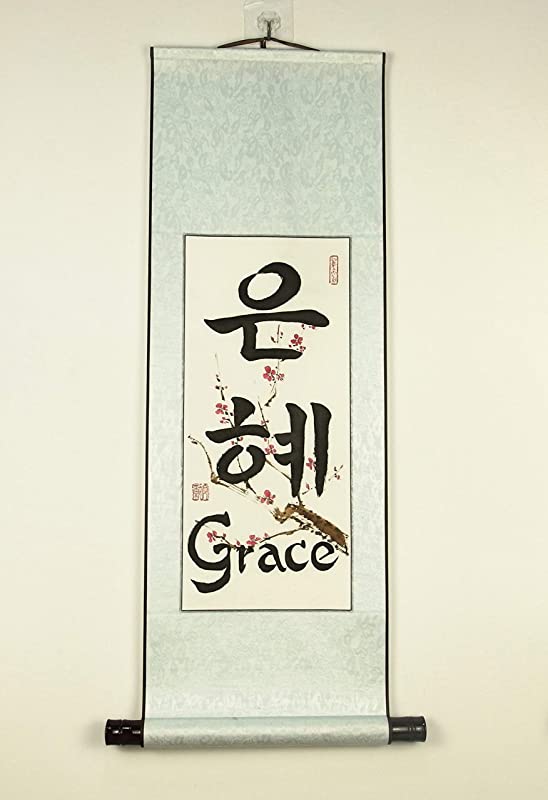 은
혜
Grace